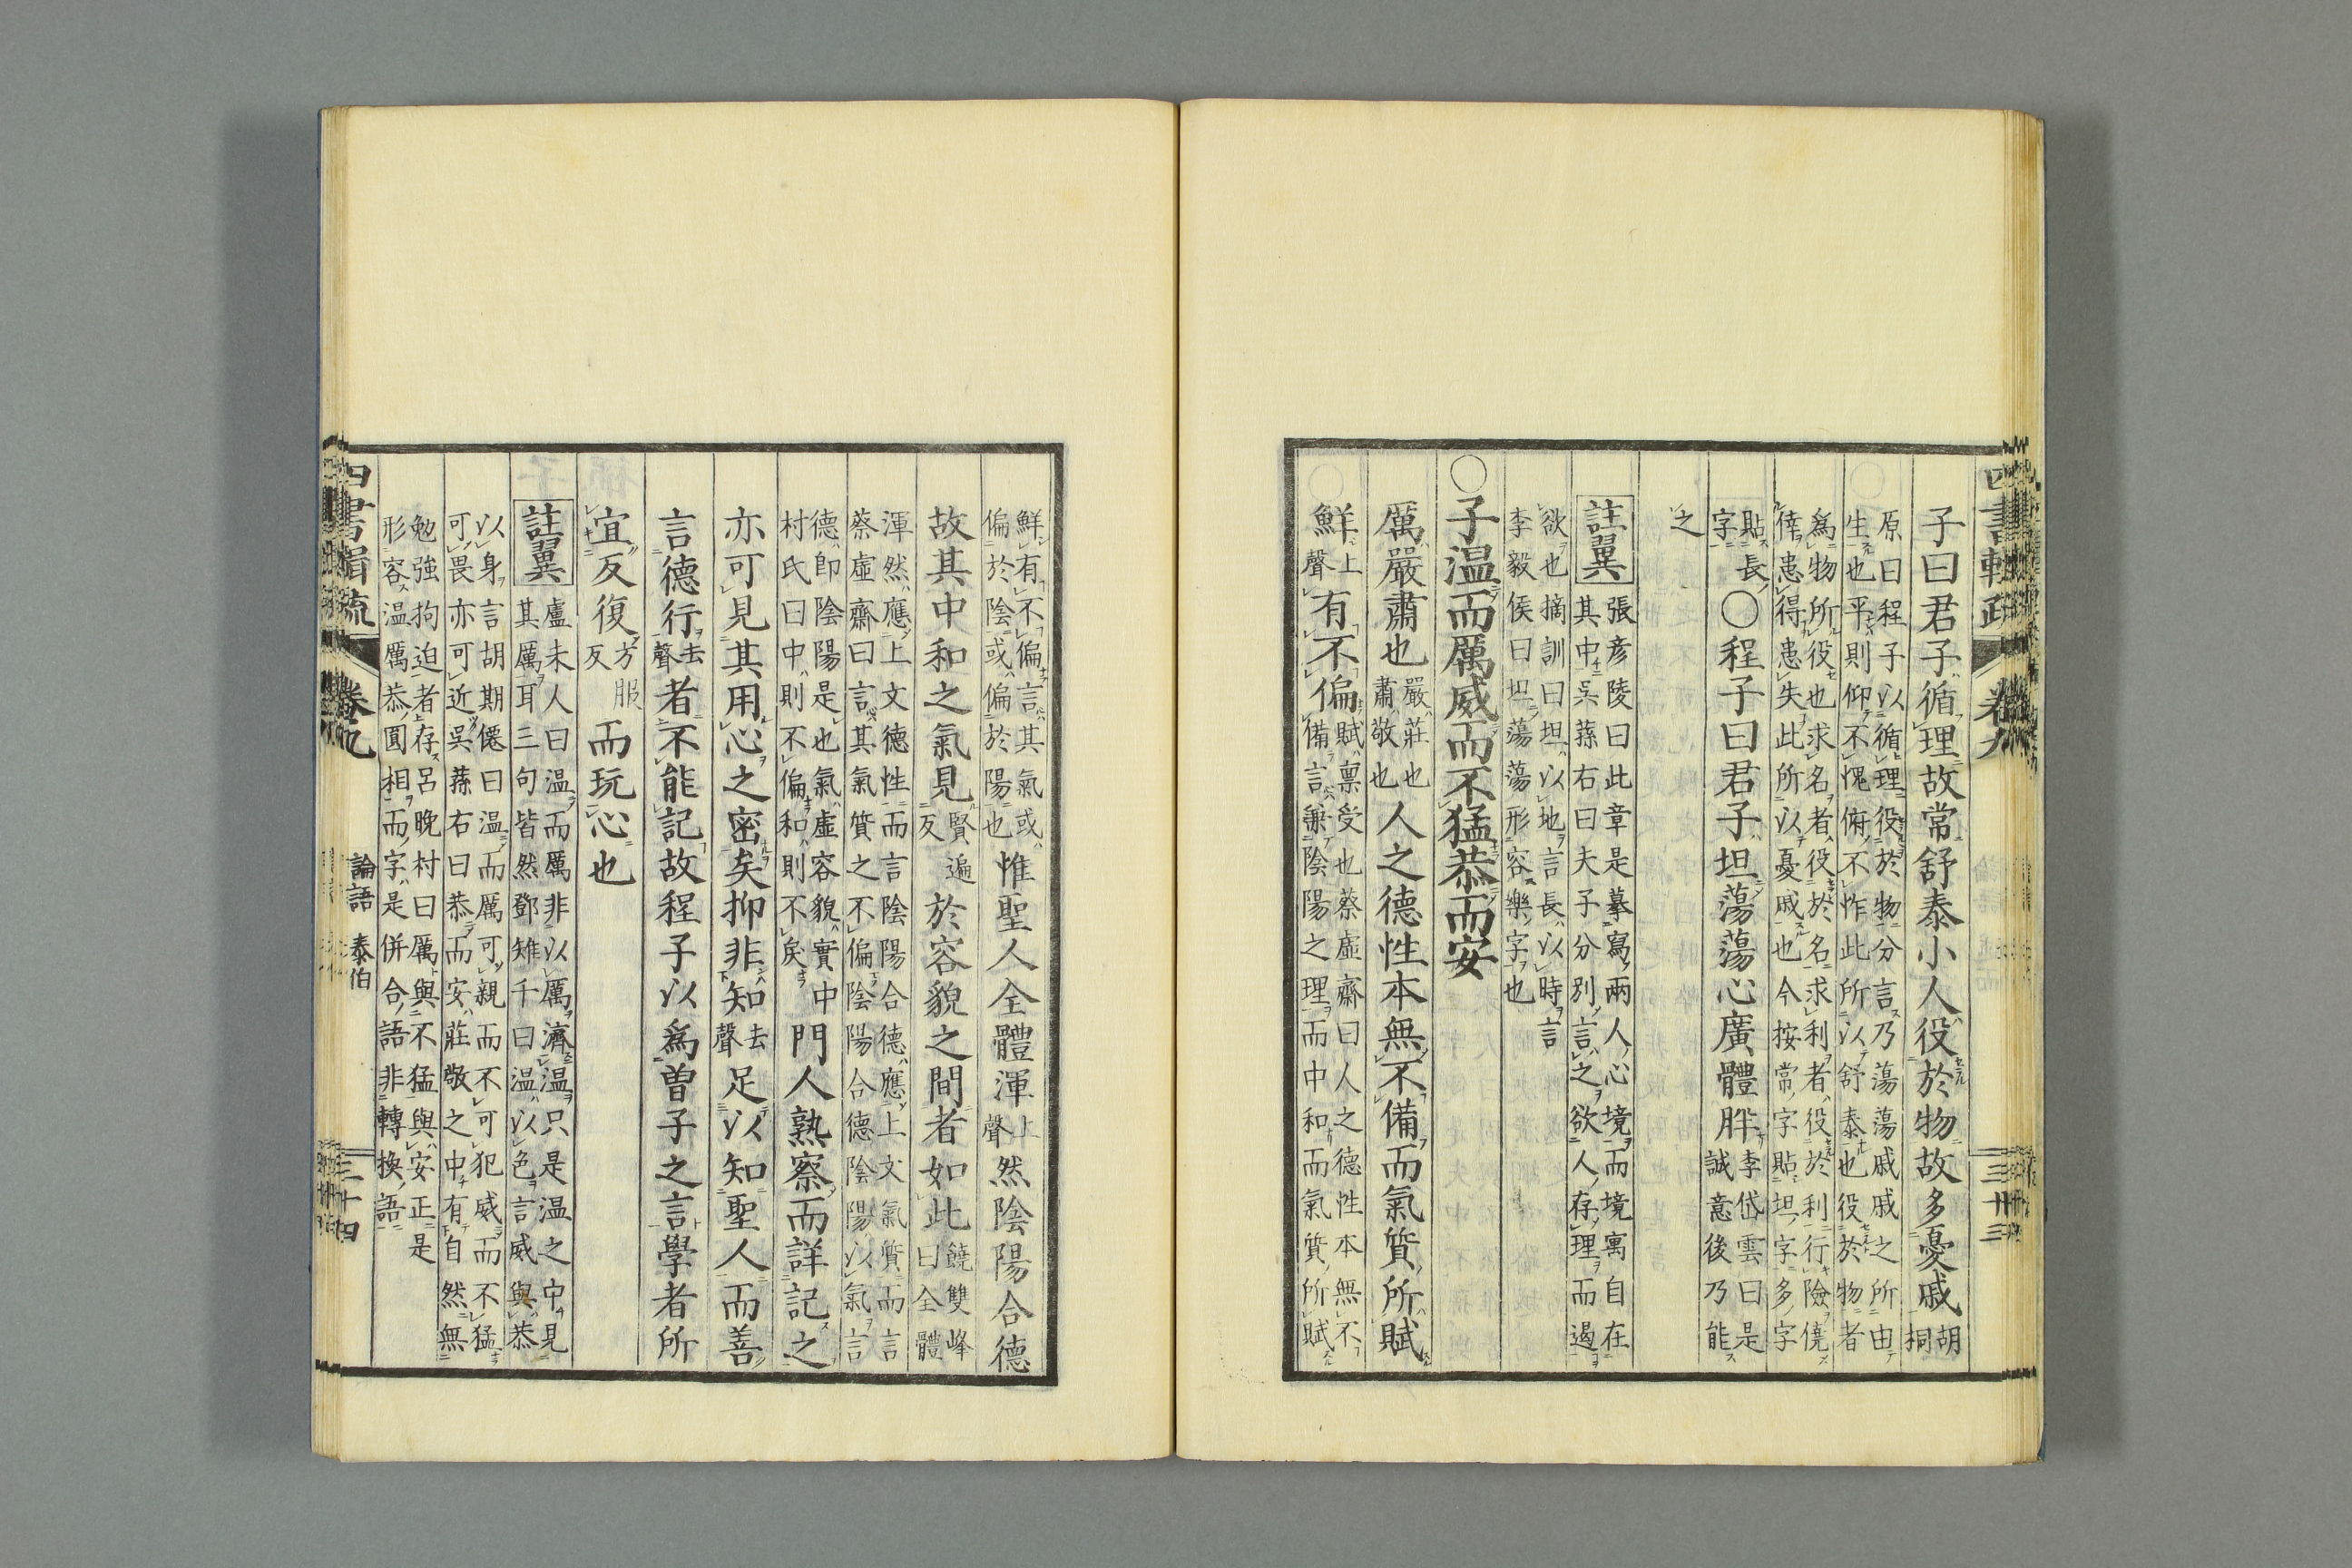 子曰君子循理故常舒泰小人役於物故多憂戚胡桐
原曰程子以循理役於物分言乃蕩蕩戚戚之所由
生也平則仰不愧俯不怍此所以舒泰也役於物者
爲物所役也求名者役於名求利者役於利行險僥
倖患得患失此所以憂戚也今按常字貼坦字多字
貼長
字〇程子曰君子坦蕩蕩心廣體胖李岱雲曰是
誠意後乃能
之
註翼張彦陵曰此章是摹寫兩人心境而境寓自在
其中吳蓀右曰夫子分別言之欲人存理而遏
欲也摘訓曰坦以地言長以時言
李毅侯曰坦蕩蕩形容樂字也
〇子温而厲威而不猛恭而安
厲嚴肅也嚴莊也
肅敬也人之德性本無不備而氣質所賦
鮮上
聲有不偏賦禀受也蔡虛齋曰人之德性本無不
備言兼陰陽之理而中和而氣質所賦
四書輯疏 卷九 三十三
鮮有不偏言其氣或
偏於陰或偏於陽也惟聖人全體渾上
聲然陰陽合德
故其中和之氣見賢遍
反於容貌之間者如此饒雙峰
曰全體
渾然應上文德性而言陰陽合德應上文氣質而言
蔡虛齋曰言其氣質之不偏陰陽合德陰陽以氣言
德即陰陽是也氣虛容貌實中
村氏曰中則不偏和則不戾門人熟察而詳記之
亦可見其用心之密矣抑非知去
聲足以知聖人而善
言德行去
聲者不能記故程子以爲曽子之言學者所
宜反復方服
反而玩心也
註翼盧未人曰温而厲非以厲濟温只是温之中見
其厲耳三句皆然鄧雉千曰温以色言威與恭
以身言胡期僊曰温而厲可親而不可犯威而不猛
可畏亦可近吳蓀右曰恭而安莊敬之中有自然無
勉強拘迫者存呂晚村曰厲與不猛與安正是
形容温厲恭圓相而字是併合語非轉換語
四書輯疏 卷九 論語 泰伯 三十四